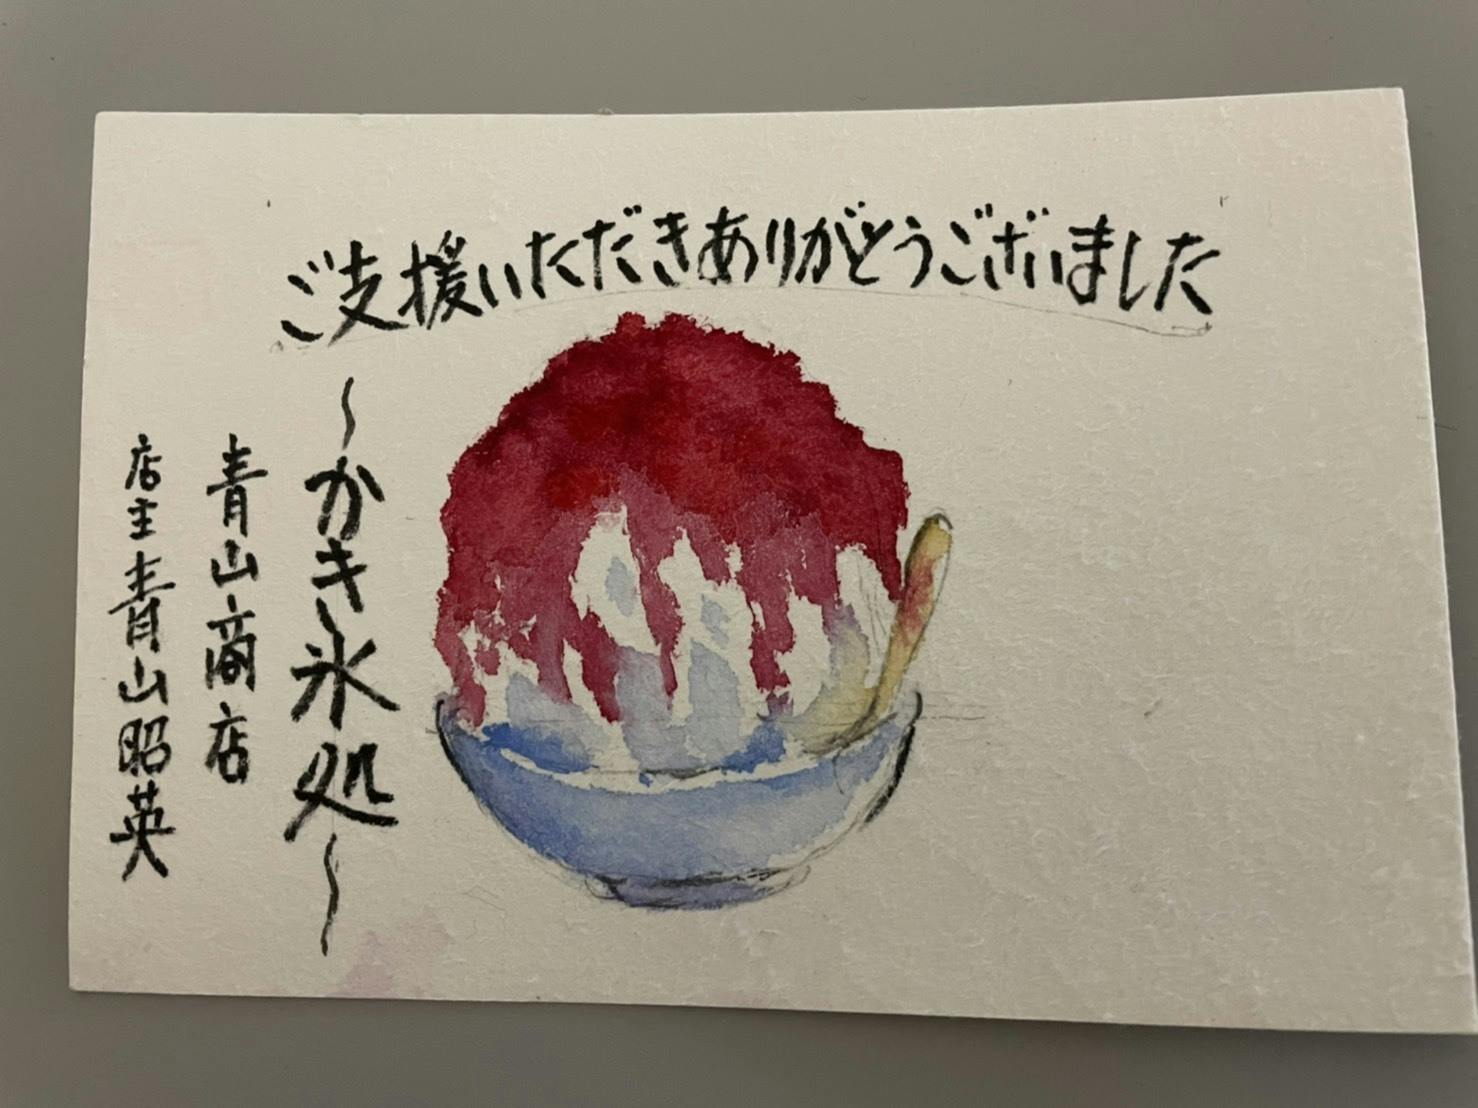 ご支援いただきありがとうございました
～かき氷処～
青山商店
店主青山昭英